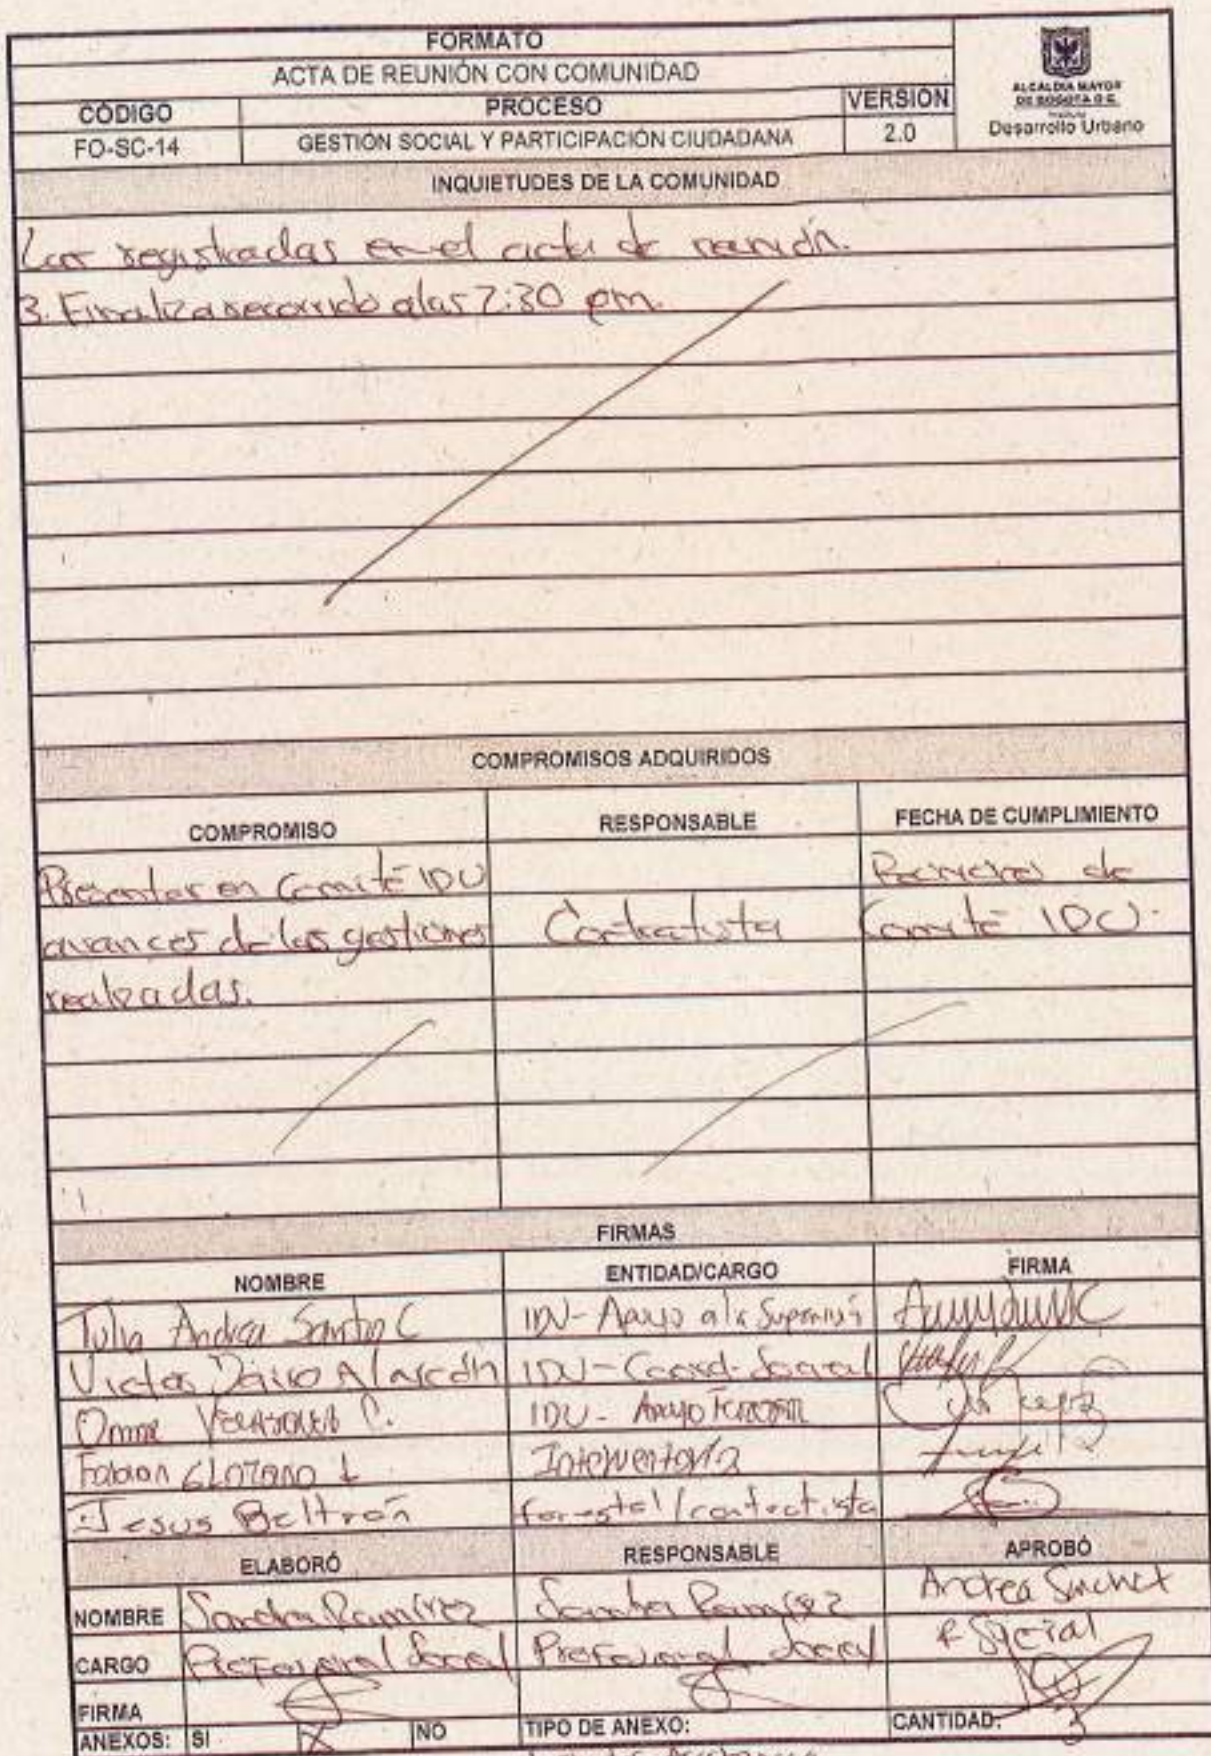 FORMATO
ACTA DE REUNIÓN CON COMUNIDAD
CÓDIGO PROCESO VERSIÓN
FO-SC-14 GESTIÓN SOCIAL Y PARTICIPACIÓN CIUDADANA 2.0
ALCALDÍA MAYOR
DE BOGOTÁ D.C.
Desarrollo Urbano
INQUIETUDES DE LA COMUNIDAD
Las registradas en el acta de reunión.
3. Finaliza recorrido a las 2:30 pm.
COMPROMISOS ADQUIRIDOS
COMPROMISO RESPONSABLE FECHA DE CUMPLIMIENTO
Presentar en Comité IDU
avances de las gestiones
realizadas.
Contratista
de
Comité IDU.
FIRMAS
NOMBRE ENTIDAD/CARGO FIRMA
Julia Andrea C IDU- Apoyo a la Supervisión
Victor Dairo Alarcón IDU- Coord. Social
C. IDU- Apoyo
Fabian Lozano L Interventoría
Jesus Beltrán forestal/contratista
ELABORÓ RESPONSABLE APROBÓ
NOMBRE Sandra Ramírez Sandra Ramírez Andrea
CARGO Profesional Social Profesional Social Social
FIRMA
ANEXOS: SI X NO TIPO DE ANEXO: CANTIDAD: 3